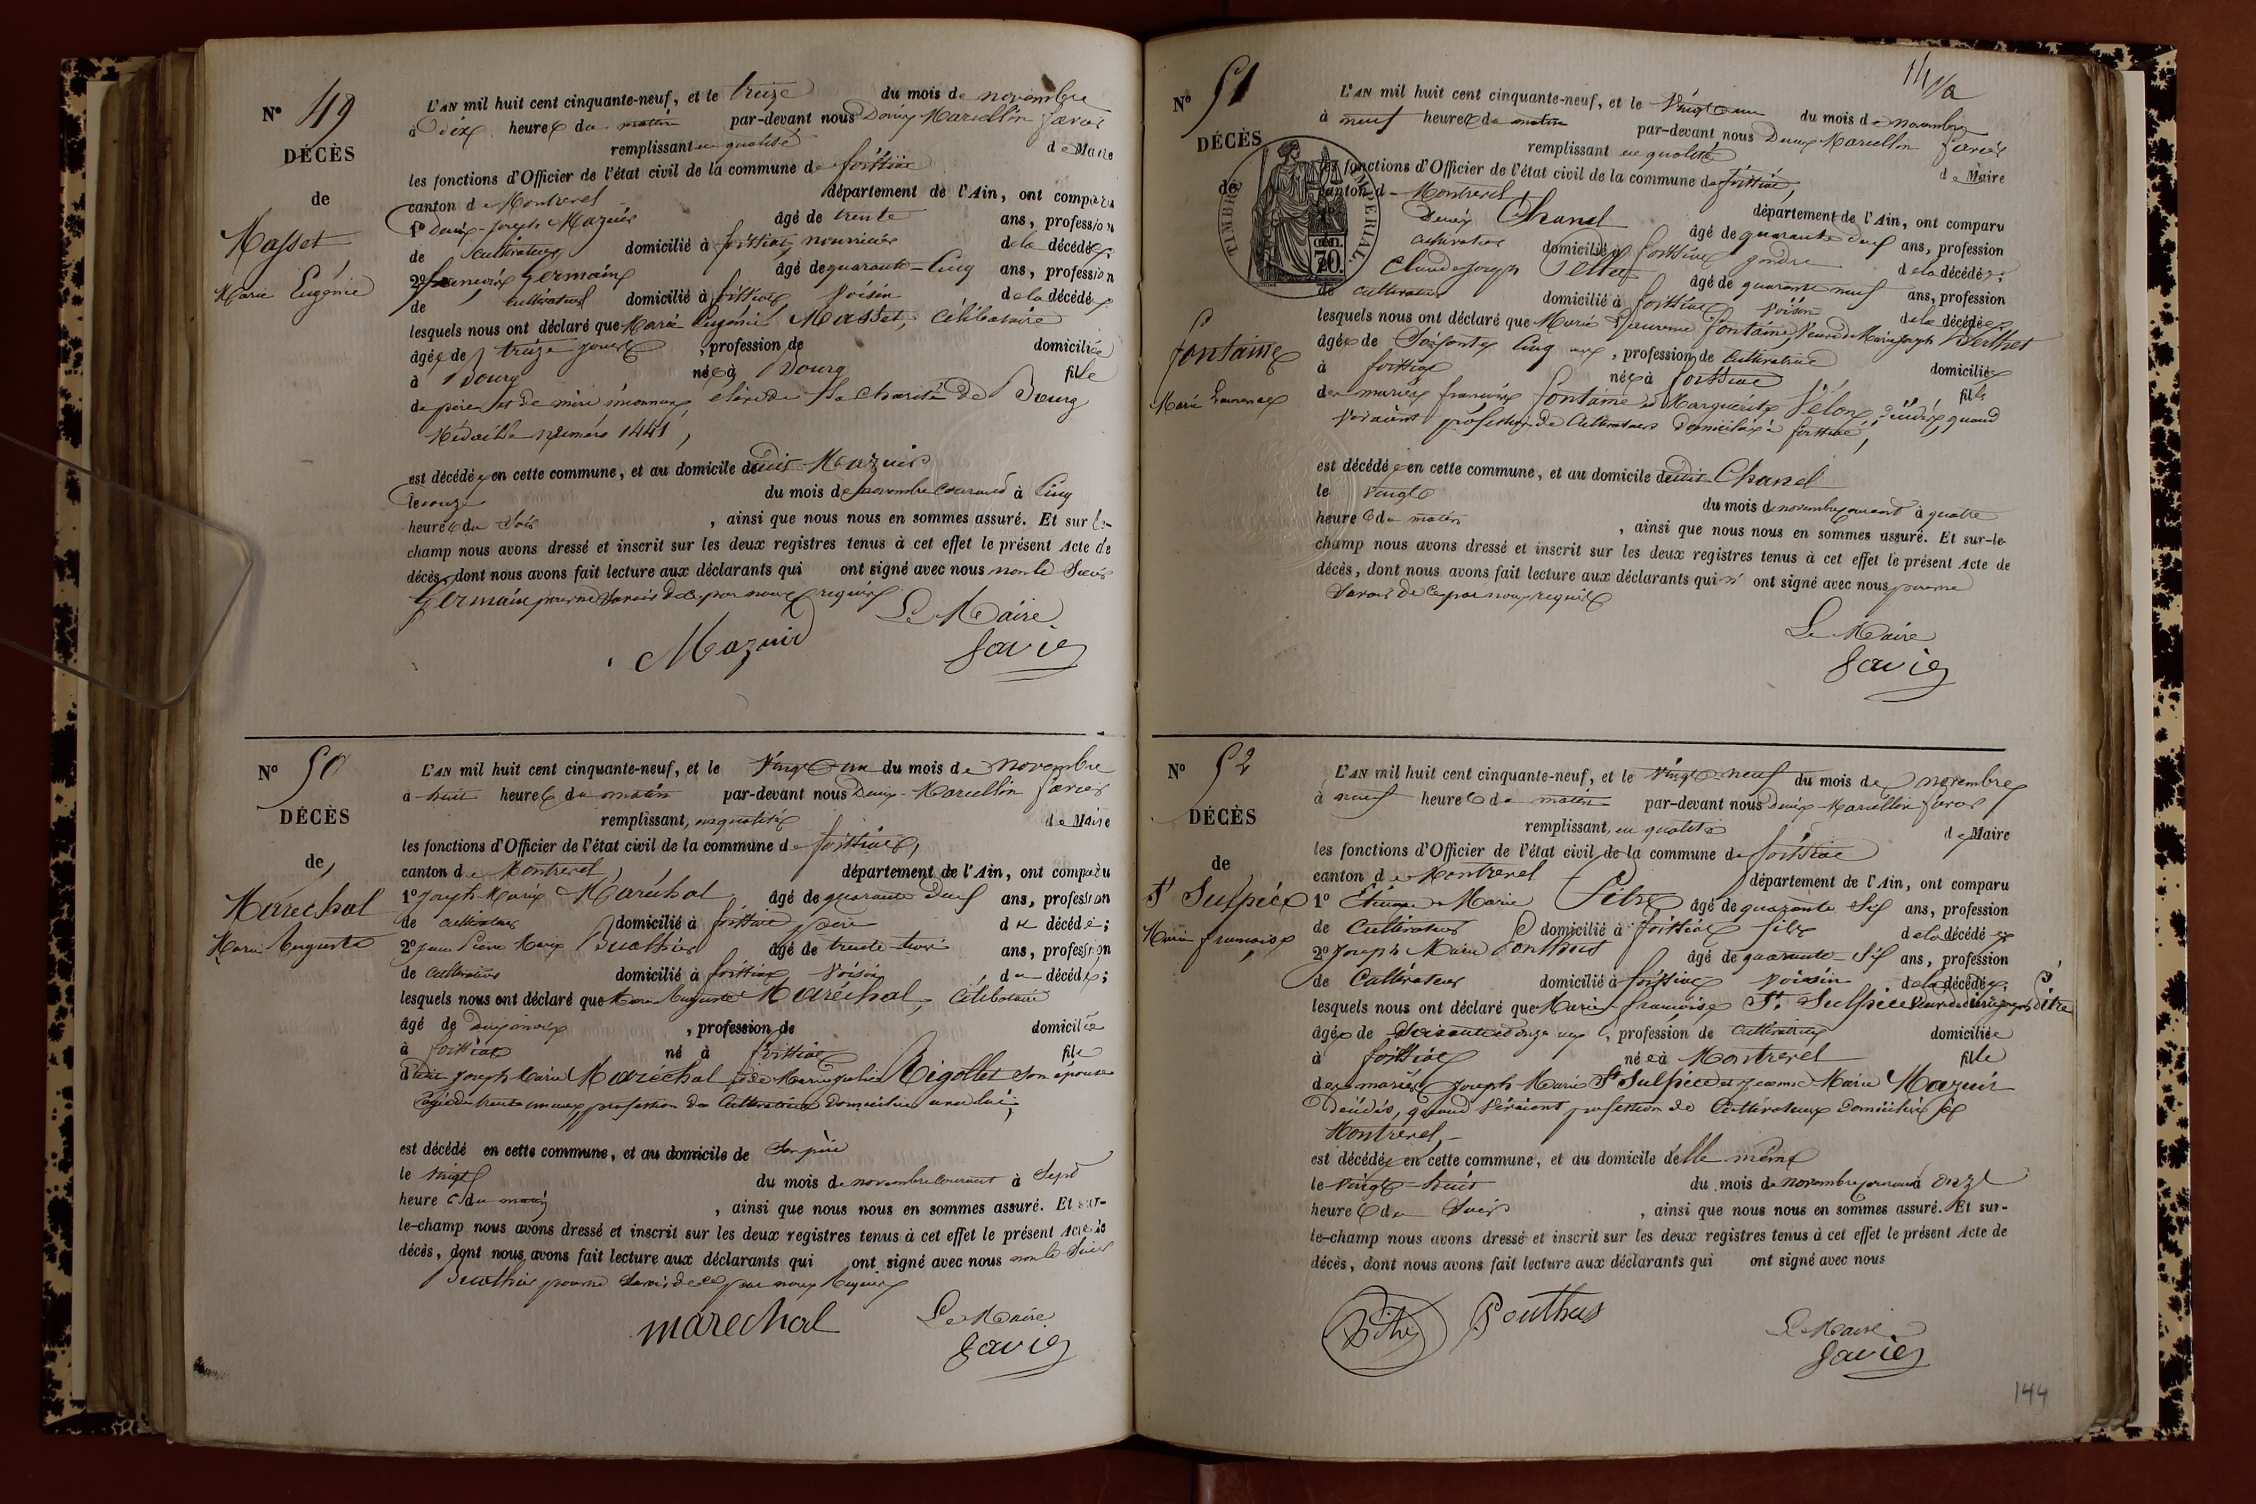 N° 49
DÉCÈS
de
Masset
Marie Eugénie
L'AN mil huit cent cinquante-neuf, et le treize du mois de novembre
à dix heures du matin par-devant nous Denis Marcellin
remplissant en qualité de Maire
les fonctions d'Officier de l'état civil de la commune de foissiat
canton de Montrevel département de l'Ain, ont comparu
1° Denis-joseph Mazuir âgé de trente ans, profession
de cultivateur domicilié à foissiat, nourricier de la décédée;
2° Germain âgé de quarante-cinq ans, profession
de cultivateur domicilié à foissiat voisin de la décédée
lesquels nous ont déclaré que Marie Eugénie Masset, célibataire
âgée de treize jours, profession de domiciliée
à Bourg née à Bourg fille
de père et de mère inconnus, élève de la Charité de Bourg
Médaille numéro 1441,
est décédée en cette commune, et au domicile dudit Mazuir
le onze du mois de novembre courant à cinq
heures du soir, ainsi que nous nous en sommes assuré. Et sur le-
champ nous avons dressé et inscrit sur les deux registres tenus à cet effet le présent Acte de
décès, dont nous avons fait lecture aux déclarants qui ont signé avec nous non le sieur
Germain pour ne savoir de ce par nous requis
Le Maire
Mazuir
N° 50
DÉCÈS
de
Maréchal
Marie Auguste
L'AN mil huit cent cinquante-neuf, et le vingt un du mois de novembre
à huit heures du matin par-devant nous Denis-Marcellin
remplissant, en qualité de Maire
les fonctions d'Officier de l'état civil de la commune de foissiat,
canton de Montrevel département de l'Ain, ont comparu
1° joseph-Marie Maréchal âgé de quarante deux ans, profession
de cultivateur domicilié à foissiat père du décédé;
2° jean Pierre Marie Buathier âgé de trente-trois ans, profession
de cultivateur domicilié à foissiat voisin du décédé;
lesquels nous ont déclaré que Marie Auguste Maréchal, célibataire
âgé de , profession de domicilié
à foissiat né à foissiat fils
dudit joseph Marie Maréchal et de Marie julie Rigollet son épouse
âgée de trente un ans, profession de cultivatrice domiciliée avec lui;
est décédé en cette commune, et au domicile de son père
le vingt du mois de novembre courant à sept
heures du matin, ainsi que nous nous en sommes assuré. Et sur-
le-champ nous avons dressé et inscrit sur les deux registres tenus à cet effet le présent Acte de
décès, dont nous avons fait lecture aux déclarants qui ont signé avec nous non le sieur
Buathier pour ne savoir de ce par nous requis
marechal
Le Maire
N° 51
DÉCÈS
de
TIMBRE IMPÉRIAL
fontaine
Marie Laurence
L'AN mil huit cent cinquante-neuf, et le vingt un du mois de novembre
à neuf heures du matin par-devant nous Denis Marcellin
remplissant en qualité de Maire
les fonctions d'Officier de l'état civil de la commune de foissiat,
canton de Montrevel département de l'Ain, ont comparu
Denis Chanel âgé de quarante deux ans, profession
cultivateur domicilié à foissiat gendre de la décédée;
Claude joseph âgé de quarante neuf ans, profession
de cultivateur domicilié à foissiat voisin de la décédée
lesquels nous ont déclaré que Marie Laurence fontaine, veuve de Marie joseph Berthet
âgée de soixante cinq ans, profession de cultivatrice domiciliée
à foissiat née à foissiat fille
des mariés françois fontaine et Marguerite Vélon, décédés, quand
vivaient profession de cultivateurs domiciliés à foissiat,
est décédée en cette commune, et au domicile dudit Chanel
le vingt du mois de novembre courant à quatre
heures du matin, ainsi que nous nous en sommes assuré. Et sur-le-
champ nous avons dressé et inscrit sur les deux registres tenus à cet effet le présent Acte de
décès, dont nous avons fait lecture aux déclarants qui n'ont signé avec nous pour ne
savoir de ce par nous requis
Le Maire
N° 52
DÉCÈS
de
St Sulpice
Marie françoise
L'AN mil huit cent cinquante-neuf, et le vingt neuf du mois de novembre
à neuf heures du matin par-devant nous Denis-Marcellin
remplissant, en qualité de Maire
les fonctions d'Officier de l'état civil de la commune de foissiat
canton de Montrevel département de l'Ain, ont comparu
1° Etienne Marie Pitre âgé de quarante six ans, profession
de cultivateur domicilié à foissiat fils de la décédée
2° joseph Marie Ponthus âgé de quarante-six ans, profession
de cultivateur domicilié à foissiat voisin de la décédée;
lesquels nous ont déclaré que Marie françoise St Sulpice veuve de Pitre
âgée de soixante et onze ans, profession de cultivatrice domiciliée
à foissiat née à Montrevel fille
des mariés joseph Marie St Sulpice et jeanne Marie Mazuir
décédés, quand vivaient profession de cultivateurs domiciliés à
Montrevel,
est décédée en cette commune, et au domicile d'elle même
le vingt-huit du mois de novembre courant à onze
heures du soir, ainsi que nous nous en sommes assuré. Et sur-
le-champ nous avons dressé et inscrit sur les deux registres tenus à cet effet le présent Acte de
décès, dont nous avons fait lecture aux déclarants qui ont signé avec nous
Pitre Ponthus
Le Maire
144